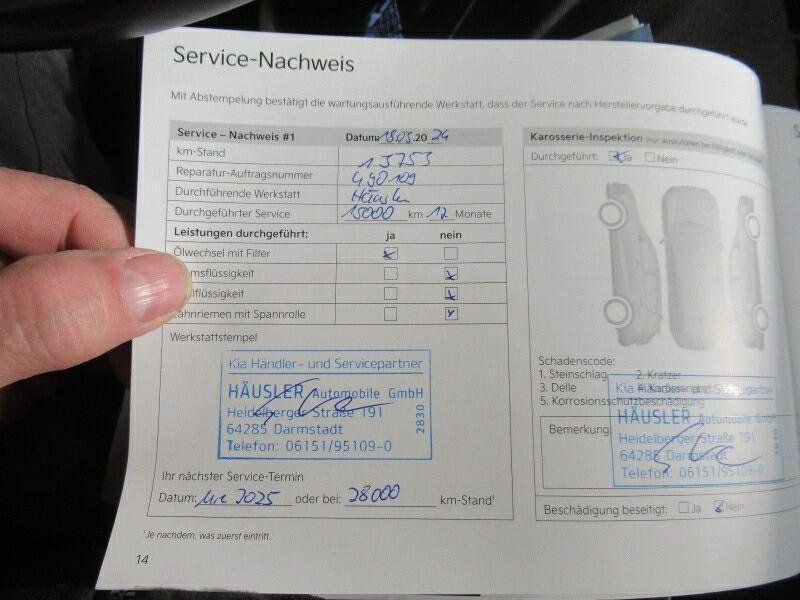 Service-Nachweis
Mit Abstempelung bestätigt die wartungsausführende Werkstatt, dass der Service nach Herstellervorgabe durchgeführt wurde.
Service – Nachweis #1 Datum: 18.03.2024
km-Stand 13753
Reparatur-Auftragsnummer 490109
Durchführende Werkstatt Häusler
Durchgeführter Service 15000 km 12 Monate
Leistungen durchgeführt: ja nein
Ölwechsel mit Filter
msflüssigkeit
lflüssigkeit
ahnriemen mit Spannrolle
Werkstattstempel
Kia Händler- und Servicepartner
HÄUSLER Automobile GmbH
Heidelberger Straße 191
64285 Darmstadt
Telefon: 06151/95109-0
2830
Ihr nächster Service-Termin
Datum: 2025 oder bei: 28000 km-Stand¹
¹Je nachdem, was zuerst eintritt.
14
Karosserie-Inspektion (nur auszufüllen bei
Durchgeführt: Ja Nein
Schadenscode:
1. Steinschlag 2. Kratzer
3. Delle 4. 
5. Korrosionsschutzbeschädigung
Bemerkung:
Kia Händler- und Servicepartner
HÄUSLER Automobile GmbH
Heidelberger Straße 191
64285 Darmstadt
Telefon: 06151/95109-0
Beschädigung beseitigt: Ja Nein